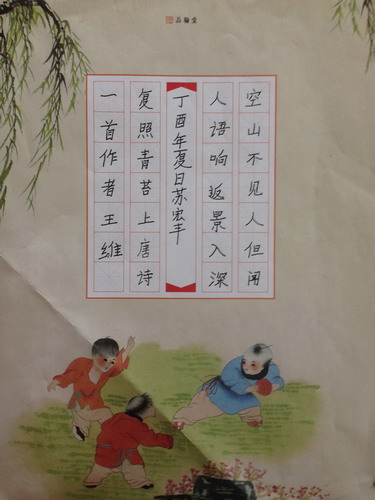 品翰堂
空山不见人但闻
人语响返景入深
丁酉年夏日苏宏丰
复照青苔上唐诗
一首作者王維